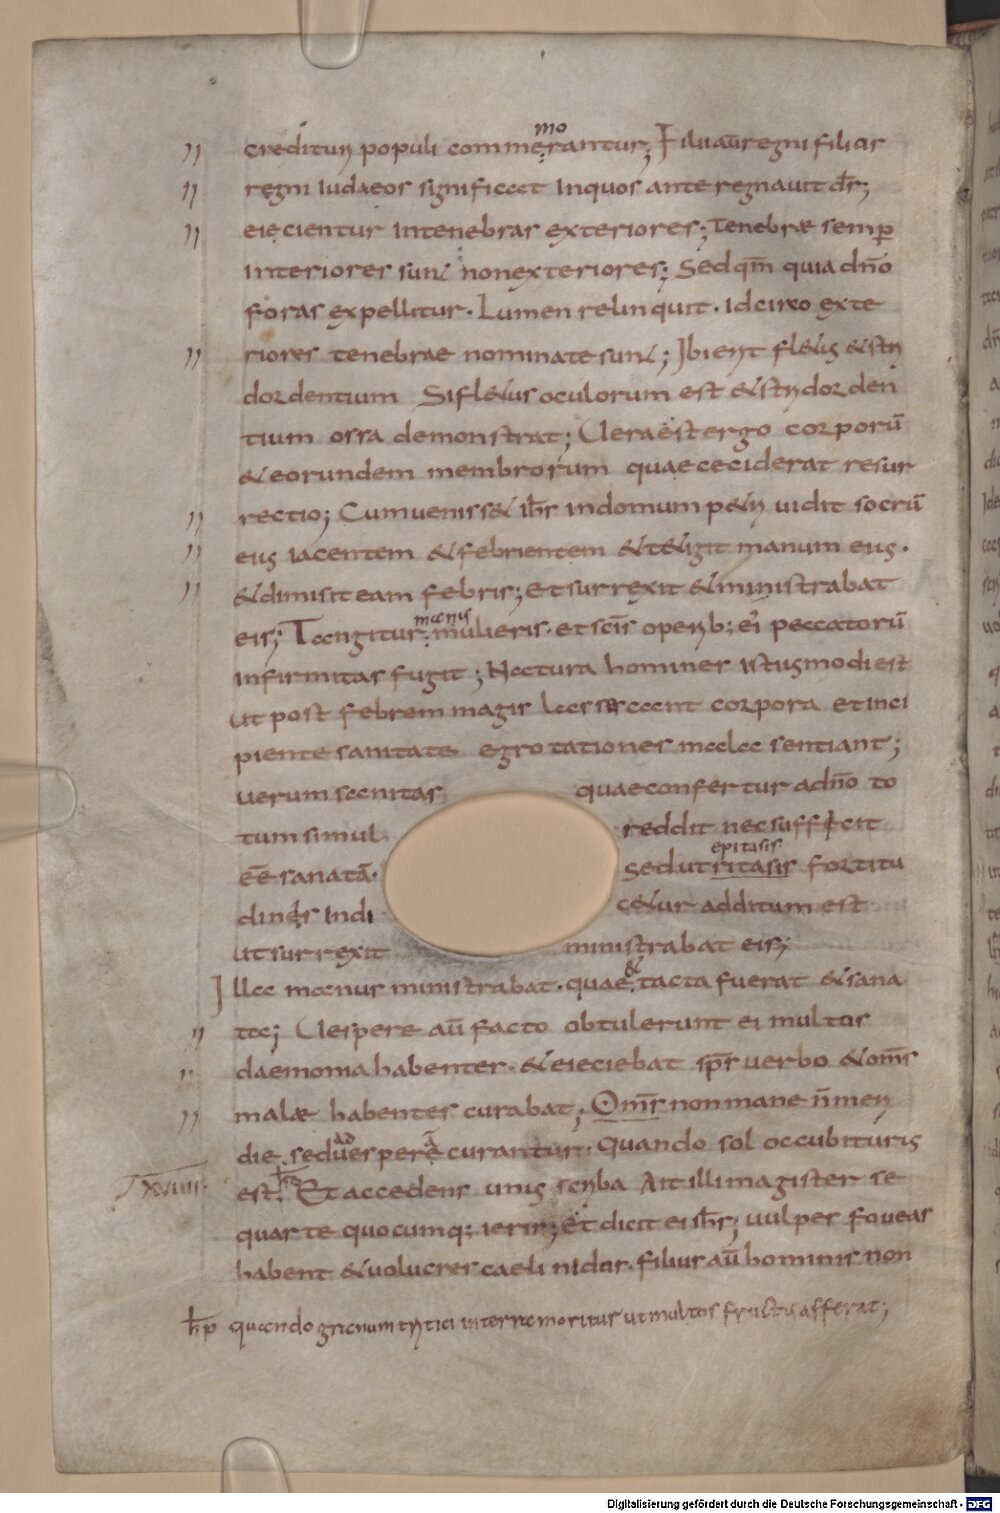 mo
credituri populi commerantur; Filii aū regni filios
regni Iudaeos significat Inquos ante regnauit ds̄;
eiecientur Intenebras exteriores; Tenebrae semp̄
Interiores sunt nonexteriores; Sed qm̄ quia dn̄o
foras expellitur. Lumen relinquit. idcirco exte
riores tenebrae nominate sunt; Ibi erit fletus & stri
dor dentium Si fletus oculorum est & stridor den
tium ossa demonstrat; Uera ēst ergo corporū
& eorundem membrorum quae ceciderat resur
rectio; Cumuenisset ih̄s indomum petri uidit socrū
eius iacentem & febrientem & tetigit manum eius.
& dimisit eam febris; Et surrexit & ministrabat
manus
eis; Tangitur: mulieris. et scīs operib; ei peccatorū
infirmitas fugit; Natura hominer istiusmodi est
ut post febrem magis lassescant corpora et inci
piente sanitate egrotationes mala sentiant;
uerum sanitas quae confertur adn̄o to
tum simul reddit nec sufficit
epitasis
eē sanatā. sed ut ritasis fortitu
dines Indi cetur additum est
ut surrexit ministrabat eis;
&
Illa manus ministrabat. quae tacta fuerat & sana
ta; Uespere aū facto obtulerunt ei multos
daemonia habentes. & eieciebat sp̄s uerbo & om̄s
malae habentes curabat; Om̄s non mane n̄ meri
AD ā
die. sed uerspere curantur. Quando sol occubiturus
TXVIIII. est. Et accedens unus scriba Ait illi magister se
quar te quocumq; ieris; Et dicit ei ih̄s; uulpes foueas
habent & uolucres caeli nidos. filius aū hominis non
h̄p quando granum tritici in terra moritur ut multos fructus afferat;
Digitalisierung gefördert durch die Deutsche Forschungsgemeinschaft - DFG